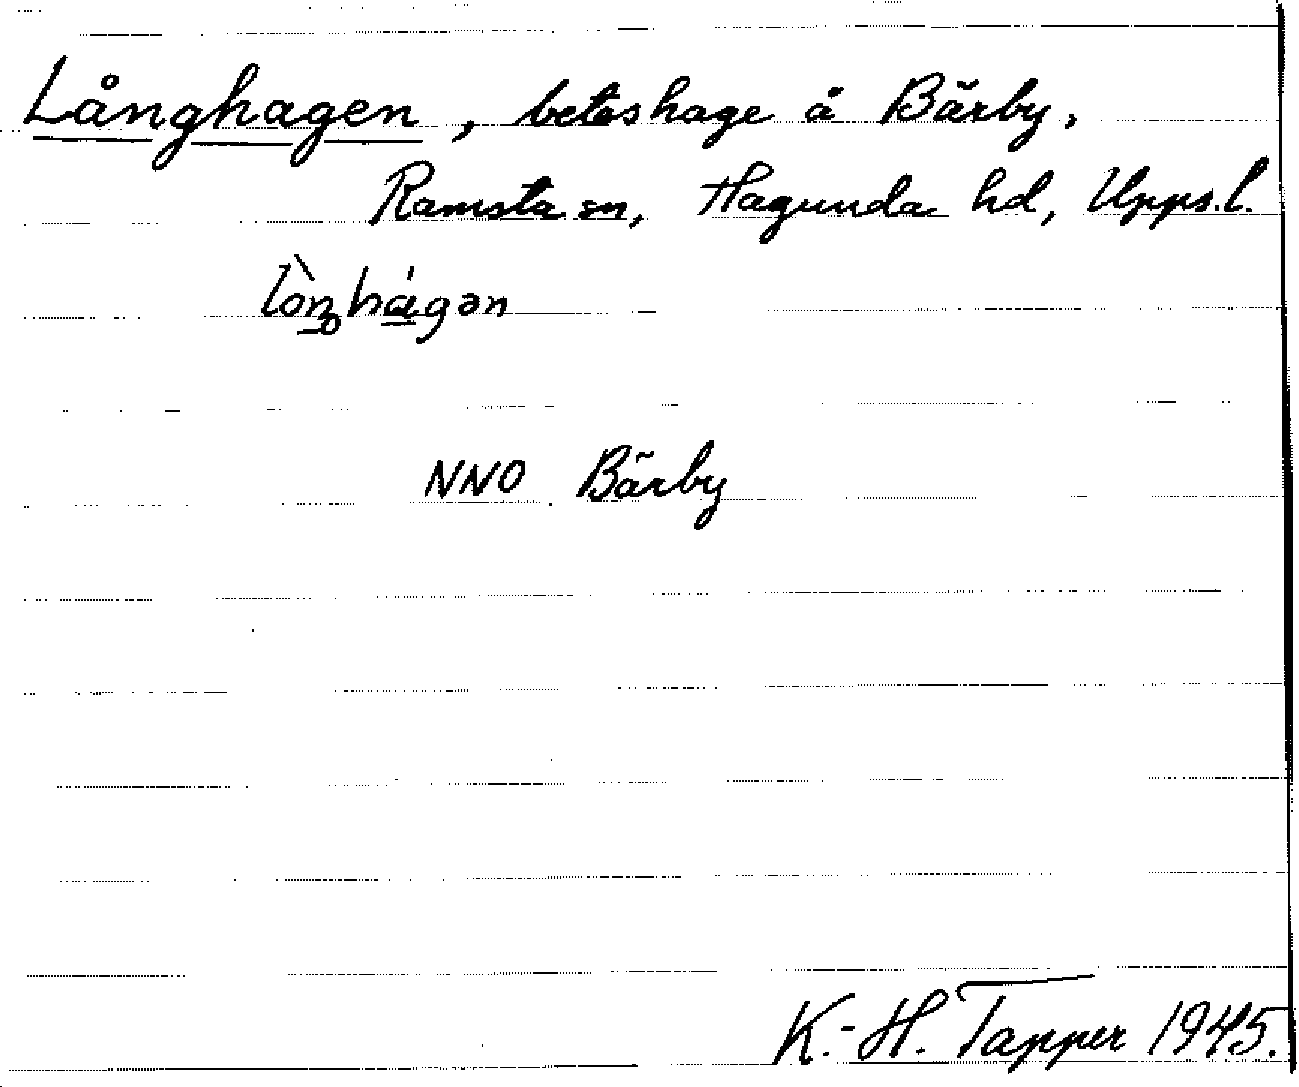 Långhagen, beteshage å Bärby,
Ramsta sn, Hagunda hd, Upps.l.
lòŋhágən
NNO Bärby
K.-H. Tapper 1945.